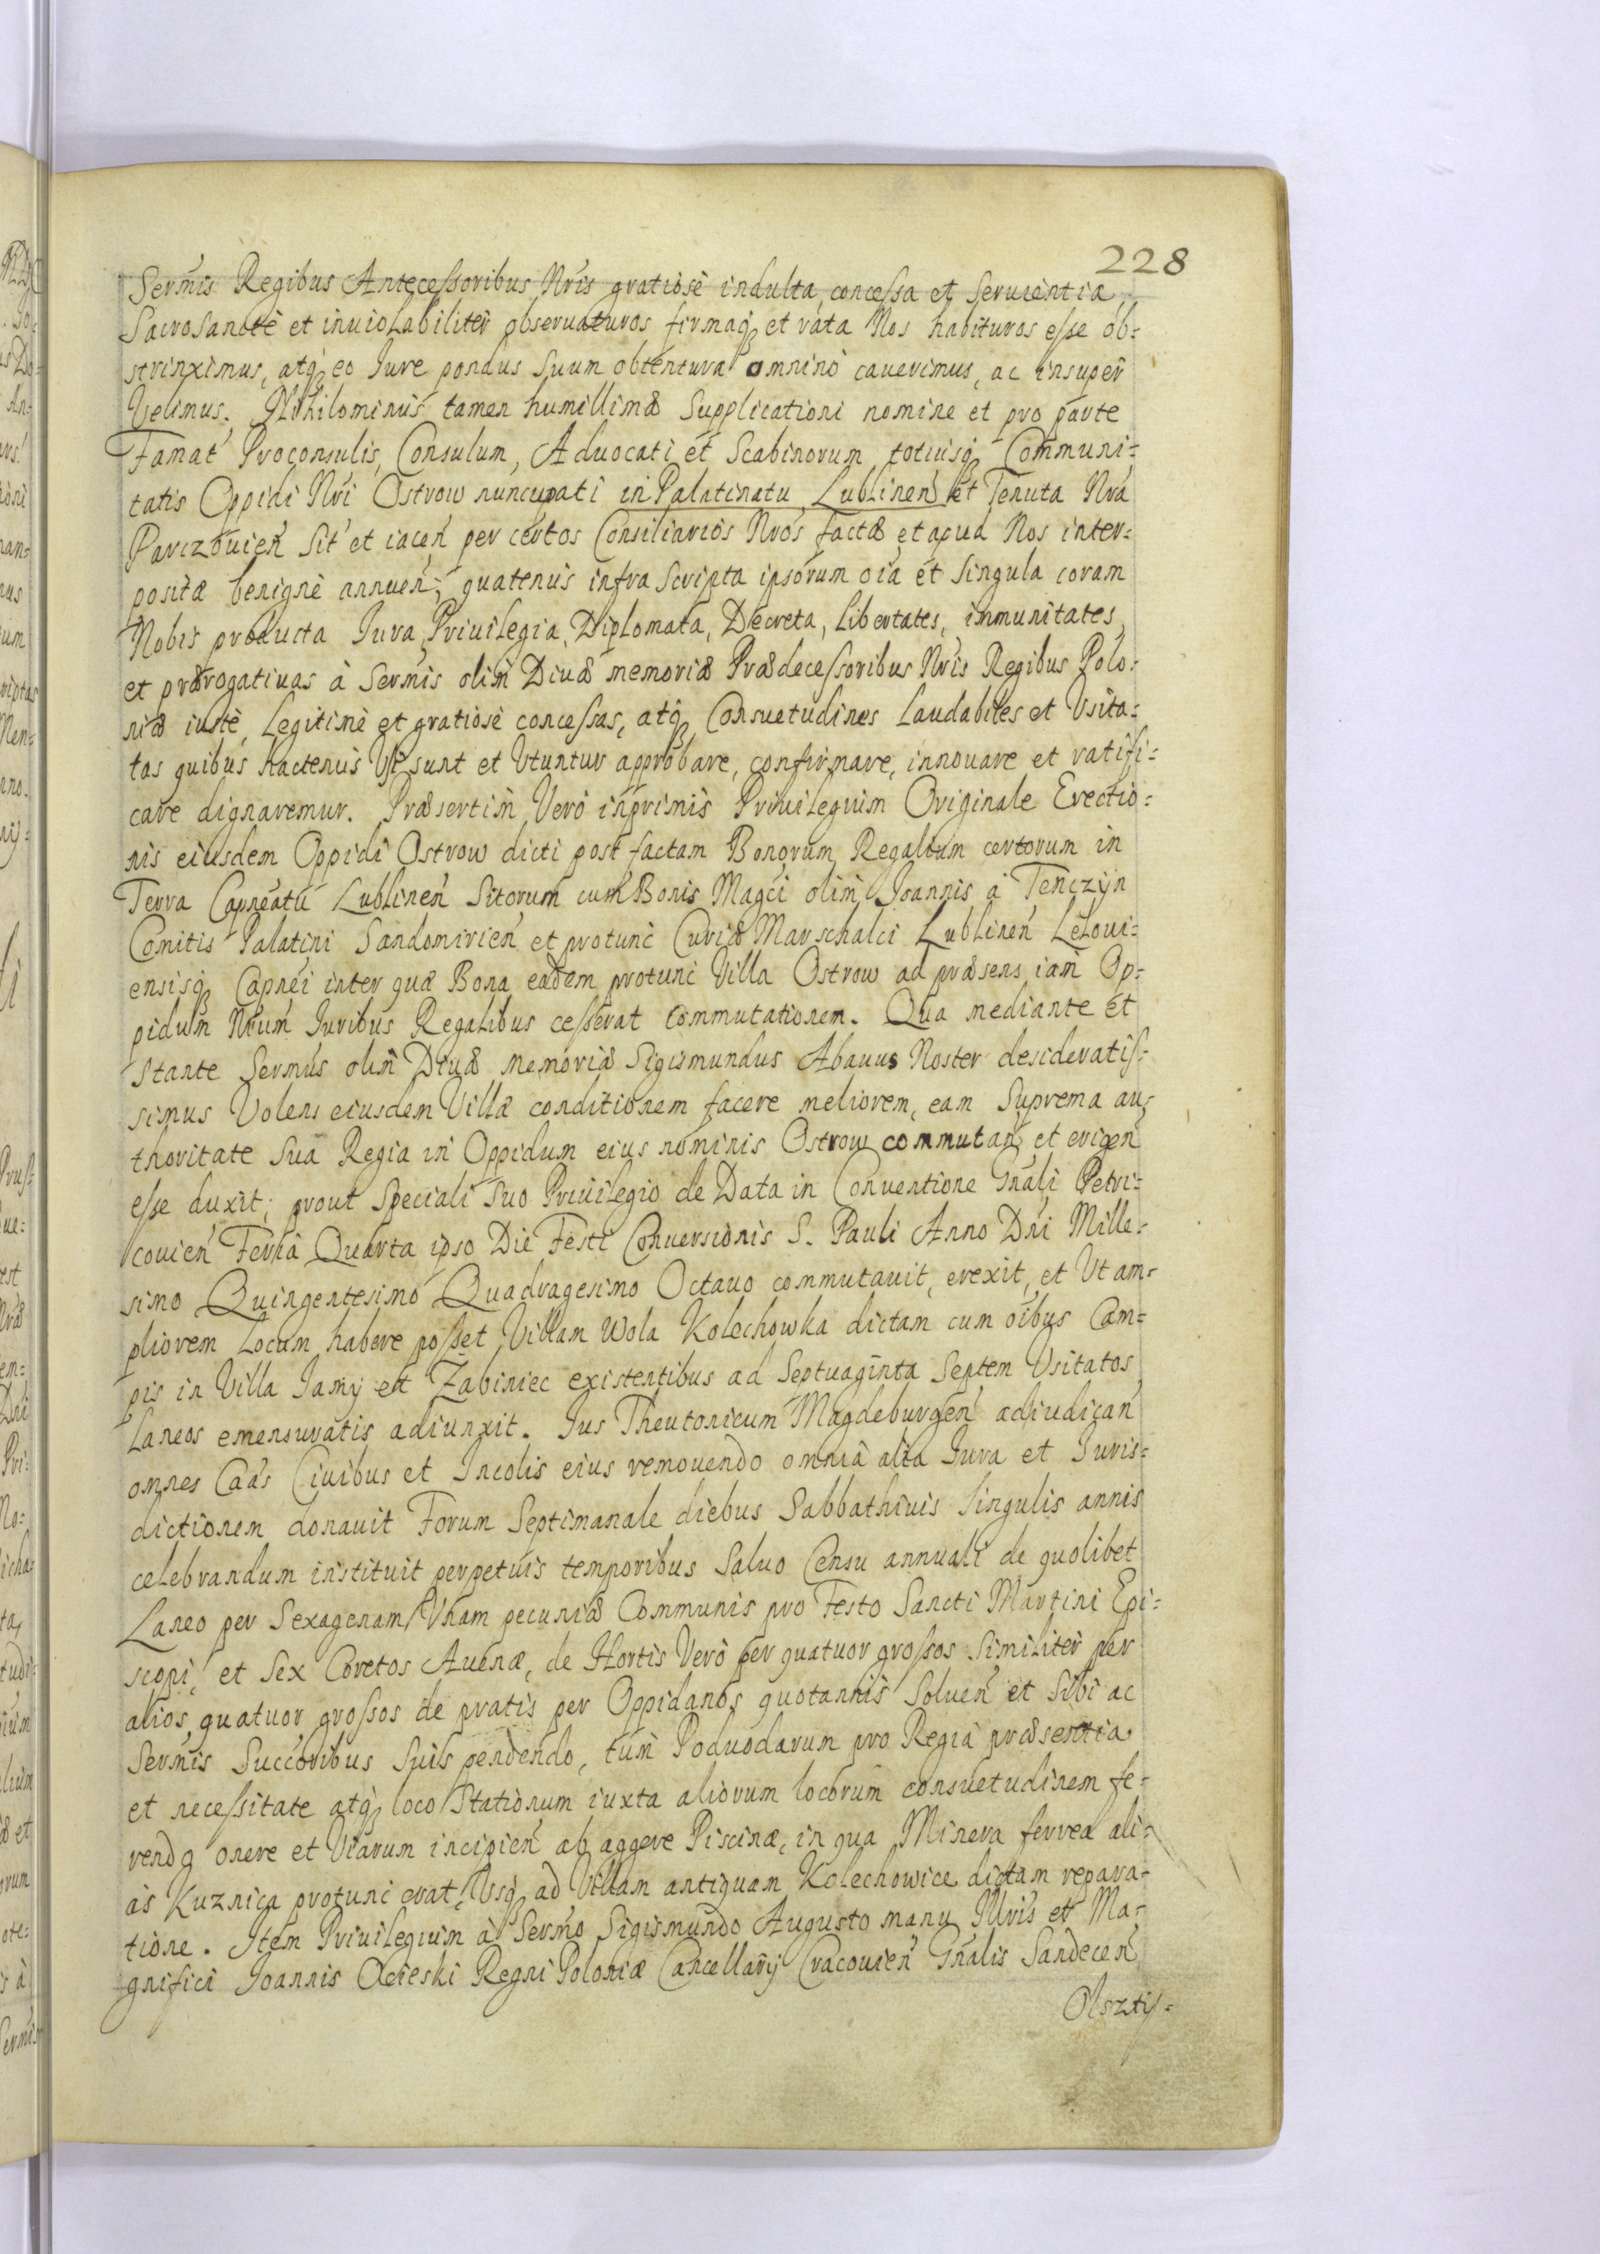 228
Serm̃is Regibus Antecessoribus Nr̃is gratiosè indulta, concessa et Seruientia,
SacroSanctè et inuiolabiliter obseruaturos firmaq; et rata Nos habituros esse ob=
strinximus, atq; eo Iure pondus Suum obtentura omninò cauerimus, ac insuper
Velimus. Nihilominus tamen humillimæ Supplicationi nomine et pro parte
Famat̃ Proconsulis, Consulum, Aduocati et Scabinorum, totiusq; Communi=
tatis Oppidi Nr̃i Ostrow nuncupati in Palatinatu Lublineñ et Tenuta Nr̃a
Parczouieñ Sit̃ et iaceñ per certos Consiliarios Nr̃os factæ, et apud Nos inter=
positæ benignè annueñ; quatenus infra Scripta ipsorum oĩa et Singula coram
Nobis producta Iura, Priuilegia, Diplomata, Decreta, Libertates, immunitates,
et prærogatiuas à Serm̃is olim Diuæ memoriæ Prædecessoribus Nr̃is Regibus Polo=
niæ iustè, Legitimè et gratiosè concessas, atq; Consuetudines Laudabiles et Vsita=
tas quibus hactenus Vsi sunt et Vtuntur approbare, confirmare, innouare et ratifi=
care dignaremur. Præsertim Verò inprimis Priuilegium Originale Erectio=
nis eiusdem Oppidi Ostrow dicti post factam Bonorum Regalium certorum in
Terra Capñeatu Lublineñ Sitorum cum Bonis Mag̃ci olim Joannis à Tenczyn
Comitis Palatini Sandomirieñ et protunc Curiæ Marschalci Lublineñ Leloui=
ensisq; Capñei inter quæ Bona eadem protunc Villa Ostrow ad præsens iam Op=
pidum Nr̃um Iuribus Regalibus cesserat Commutationem. Qua mediante et
Stante Serm̃us olim Diuæ Memoriæ Sigismundus Abauus Noster desideratis=
simus Volens eiusdem Villæ conditionem facere meliorem, eam Suprema au=
thoritate Sua Regia in Oppidum eius nominis Ostrow commutañ et erigeñ
esse duxit; prout Speciali Suo Priuilegio de Data in Conuentione Gñali Petri=
couieñ Feria Quarta ipso Die Festi Conuersionis S. Pauli Anno Dñi Mille=
simo Quingentesimo Quadragesimo Octauo commutauit, erexit, et Vt am=
pliorem Locum habere posset Villam Wola Kolechowka dictam cum oĩbus Cam=
pis in Villa Jamy et Zabiniec existentibus ad Septuaginta Septem Vsitatos
Laneos emensuratis adiunxit. Ius Theutonicum Magdeburgeñ adiudicañ
omnes Cãas Ciuibus et Incolis eius remouendo omnia alia Iura et Iuris=
dictionem donauit Forum Septimanale diebus Sabbathiuis Singulis annis
celebrandum instituit perpetuis temporibus Saluo Censu annuali de quolibet
Laneo per Sexagenam Vnam pecuniæ Communis pro Festo Sancti Martini Epi=
scopi, et Sex Coretos Auenæ, de Hortis Verò per quatuor grossos Similiter per
alios quatuor grossos de pratis per Oppidanos quotannis Solueñ et Sibi ac
Serm̃is Succoribus Suis pendendo, tum Poduodarum pro Regia præsentia
et necessitate atq; loco Stationum iuxta aliorum locorum consuetudinem fe=
rendo onere et Viarum incipieñ ab aggere Piscinæ, in qua Minera ferrea ali=
às Kuznica protunc erat, Vsq; ad Villam antiquam Kolechowice dictam repara=
tione. Item Priuilegium à Serm̃o Sigismundo Augusto manu Ill̃ris et Ma=
gnifici Joannis Ocieski Regni Poloniæ Cancellarij Cracouieñ Gñalis Sandeceñ
Olszty=